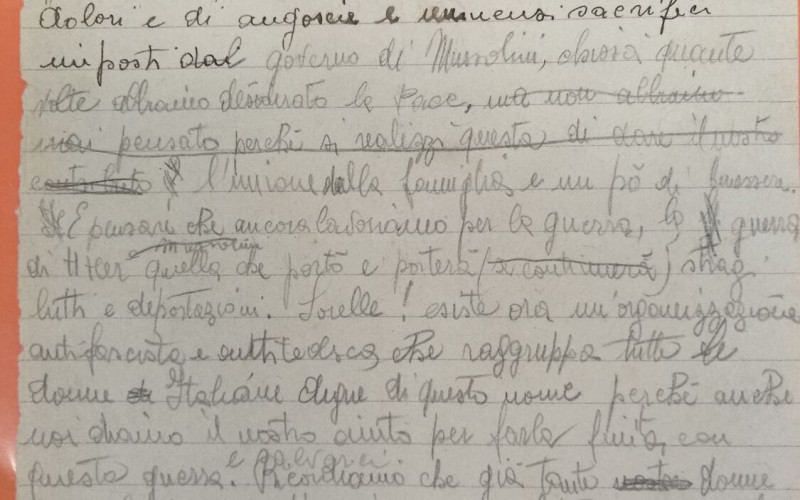 dolori e di angoscie e numerosi sacrifici
imposti dal governo di Mussolini, chissà quante
volte abbiamo desiderato la Pace, ma non abbiamo
mai pensato perché si realizzi questa di dare il nostro
contributo l'unione della famiglia, e un pò di benessere.
E pensare che ancora lavoriamo per la guerra, la guerra
Mussolini
di Hitler quella che portò e porterà (se continuerà) stragi
lutti e deportazioni. Sorelle! esiste ora un'organizzazione
antifascista e antitedesca che raggruppa tutte le
donne Italiane degne di questo nome perché anche
noi diamo il nostro aiuto per farla finita con
e
questa guerra. Ricordiamo che già tante donne